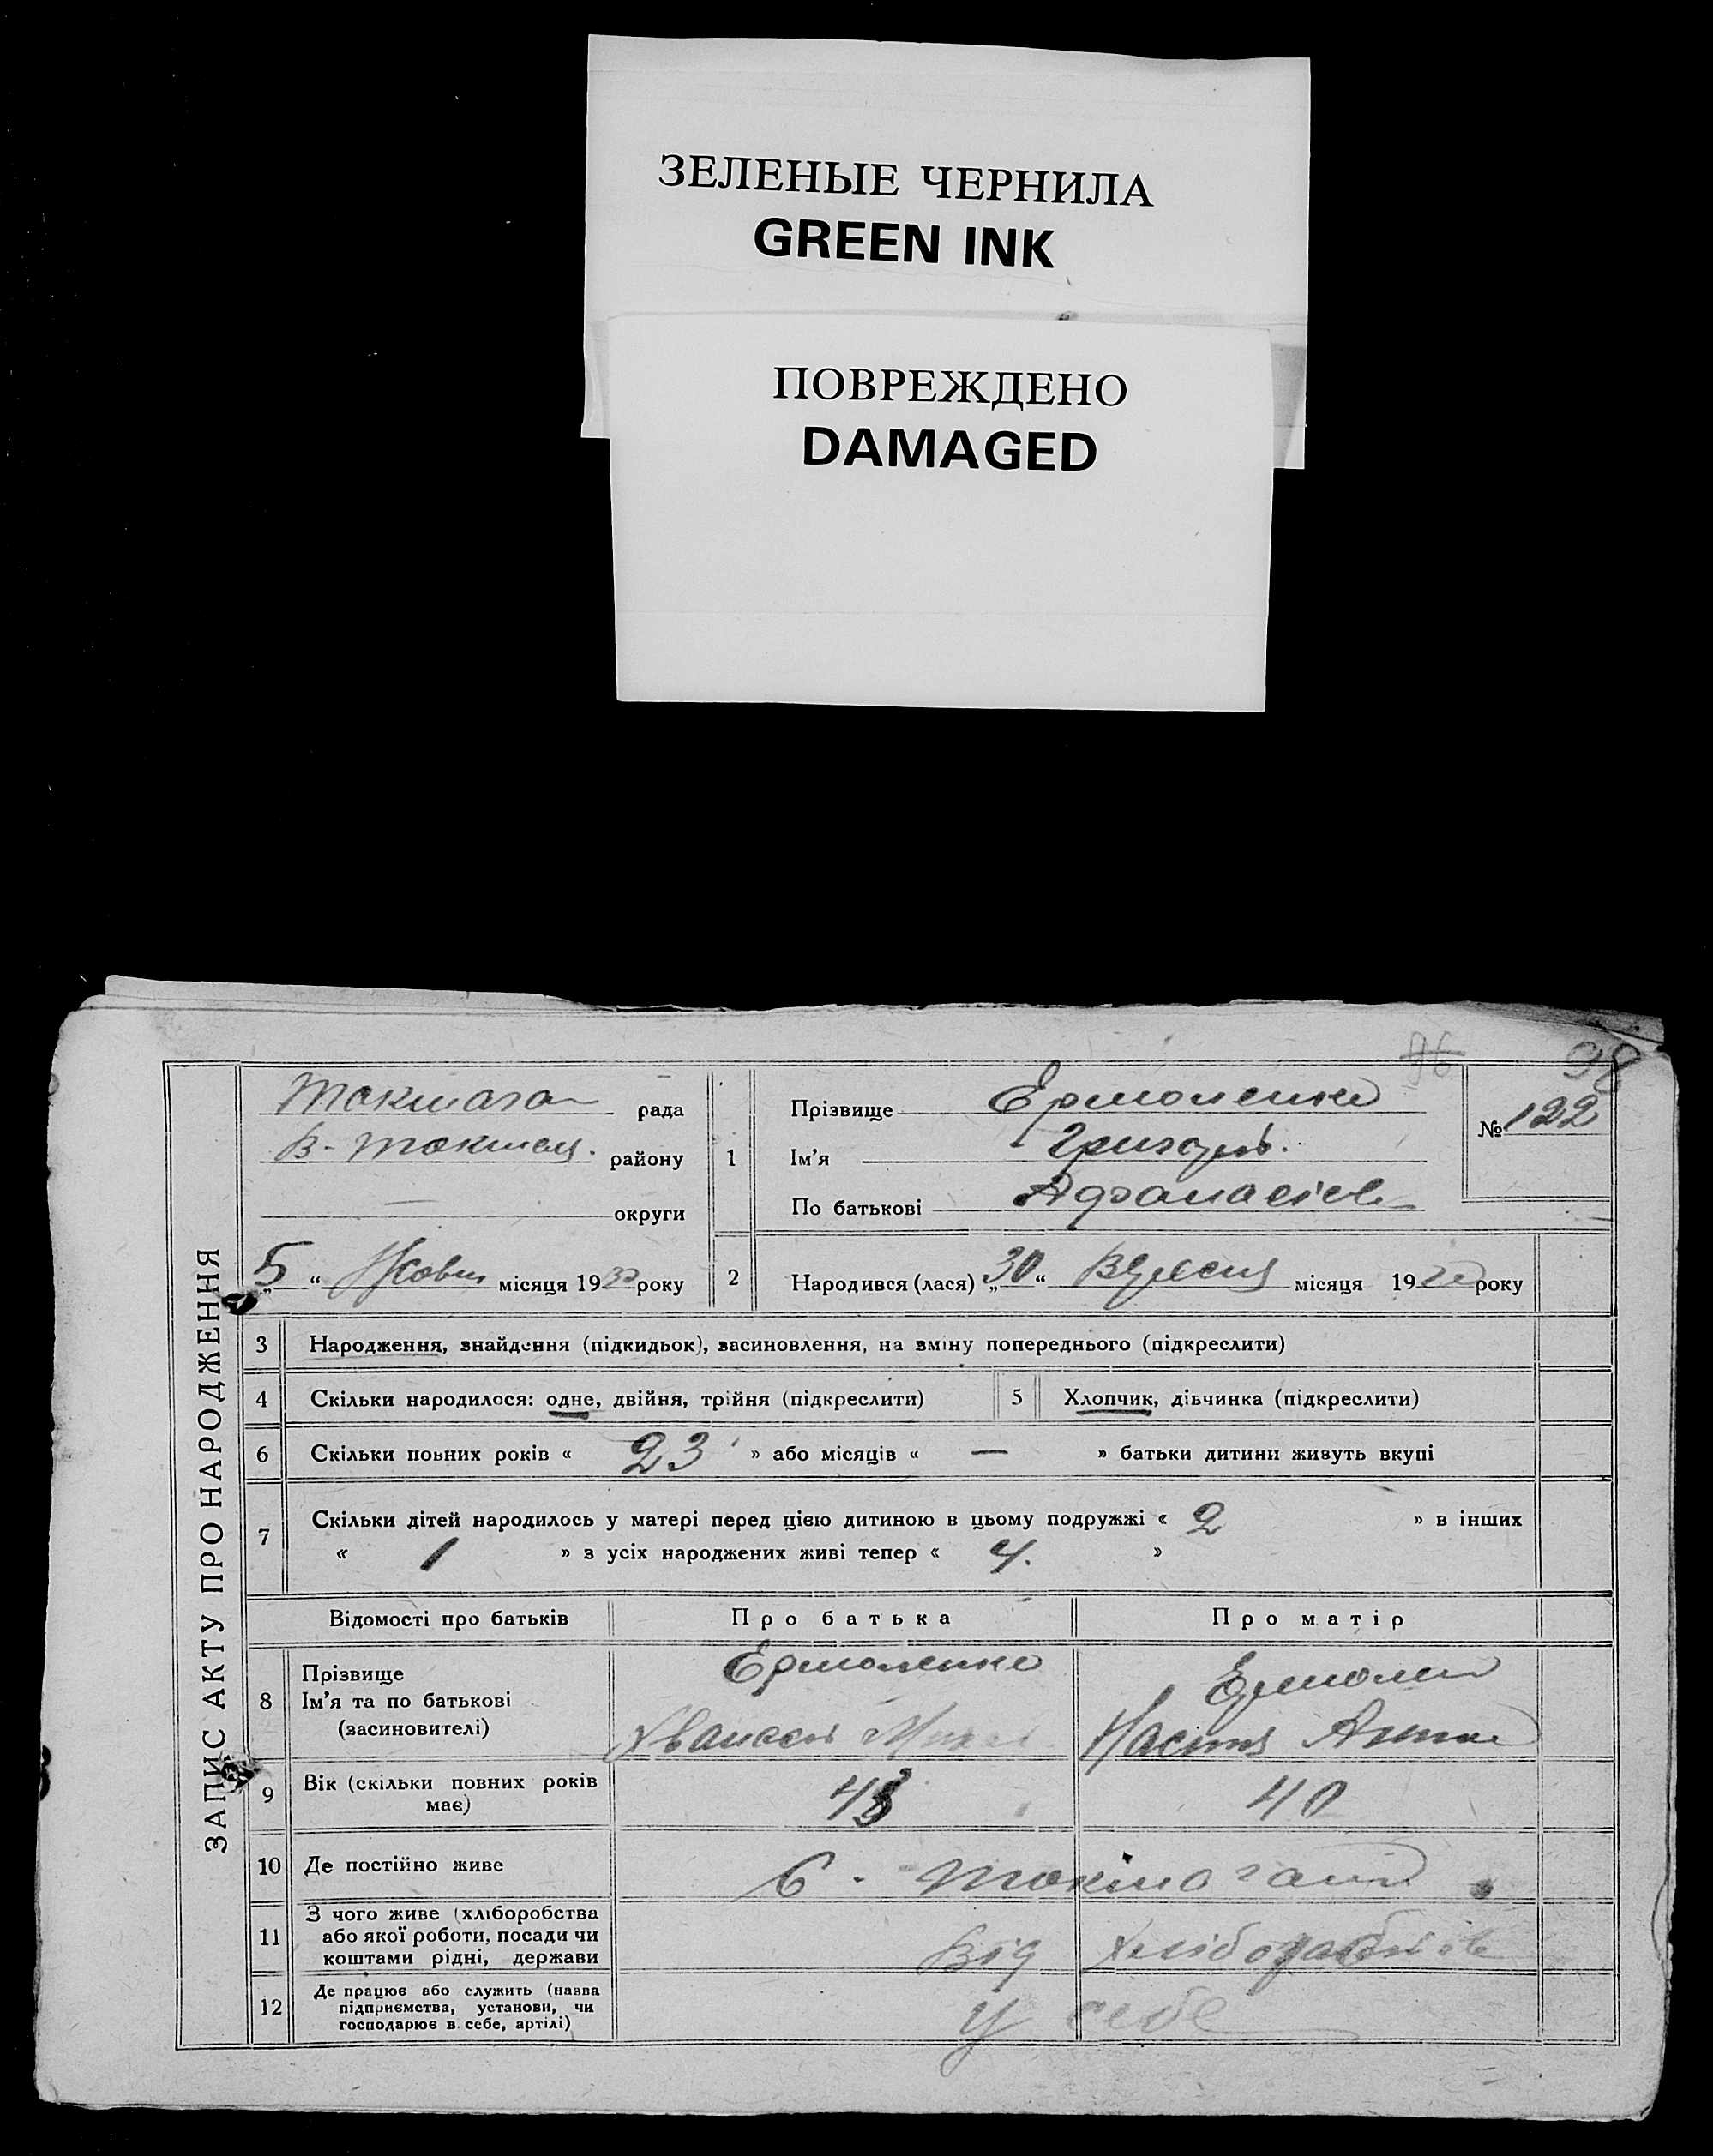 ЗЕЛЕНЫЕ ЧЕРНИЛА
GREEN INK
ПОВРЕЖДЕНО
DAMAGED
98
ЗАПИС АКТУ ПРО НАРОДЖЕННЯ
рада
В-Токмац. району
округи
„5“ Жовтн місяця 1930 року
1
Прізвище Ермоленко
Ім'я Григорь.
По батькові Афонасієв
№ 122
2 Народився (лася) „30“ Вересня місяця 1930 року
3 Народження, знайдення (підкидьок), засиновлення, на зміну попереднього (підкреслити)
4 Скільки народилося: одне, двійня, трійня (підкреслити) 5 Хлопчик, дівчинка (підкреслити)
6 Скільки повних років « 23 » або місяців « — » батьки дитини живуть вкупі
7 Скільки дітей народилось у матері перед цією дитиною в цьому подружжі « 2 » в інших
« 1 » з усіх народжених живі тепер « 4. »
Відомості про батьків Про батька Про матір
8 Прізвище Ермоленко Ермолен
Ім'я та по батькові
(засновителі) Настя
9 Вік (скільки повних років
має) 43 40
10 Де постійно живе С.
11 З чого живе (хліборобства
або якої роботи, посади чи
коштами рідні, держави Від
12 Де працює або служить (назва
підприємства, установи, чи
господарює в себе, артілі) У себе